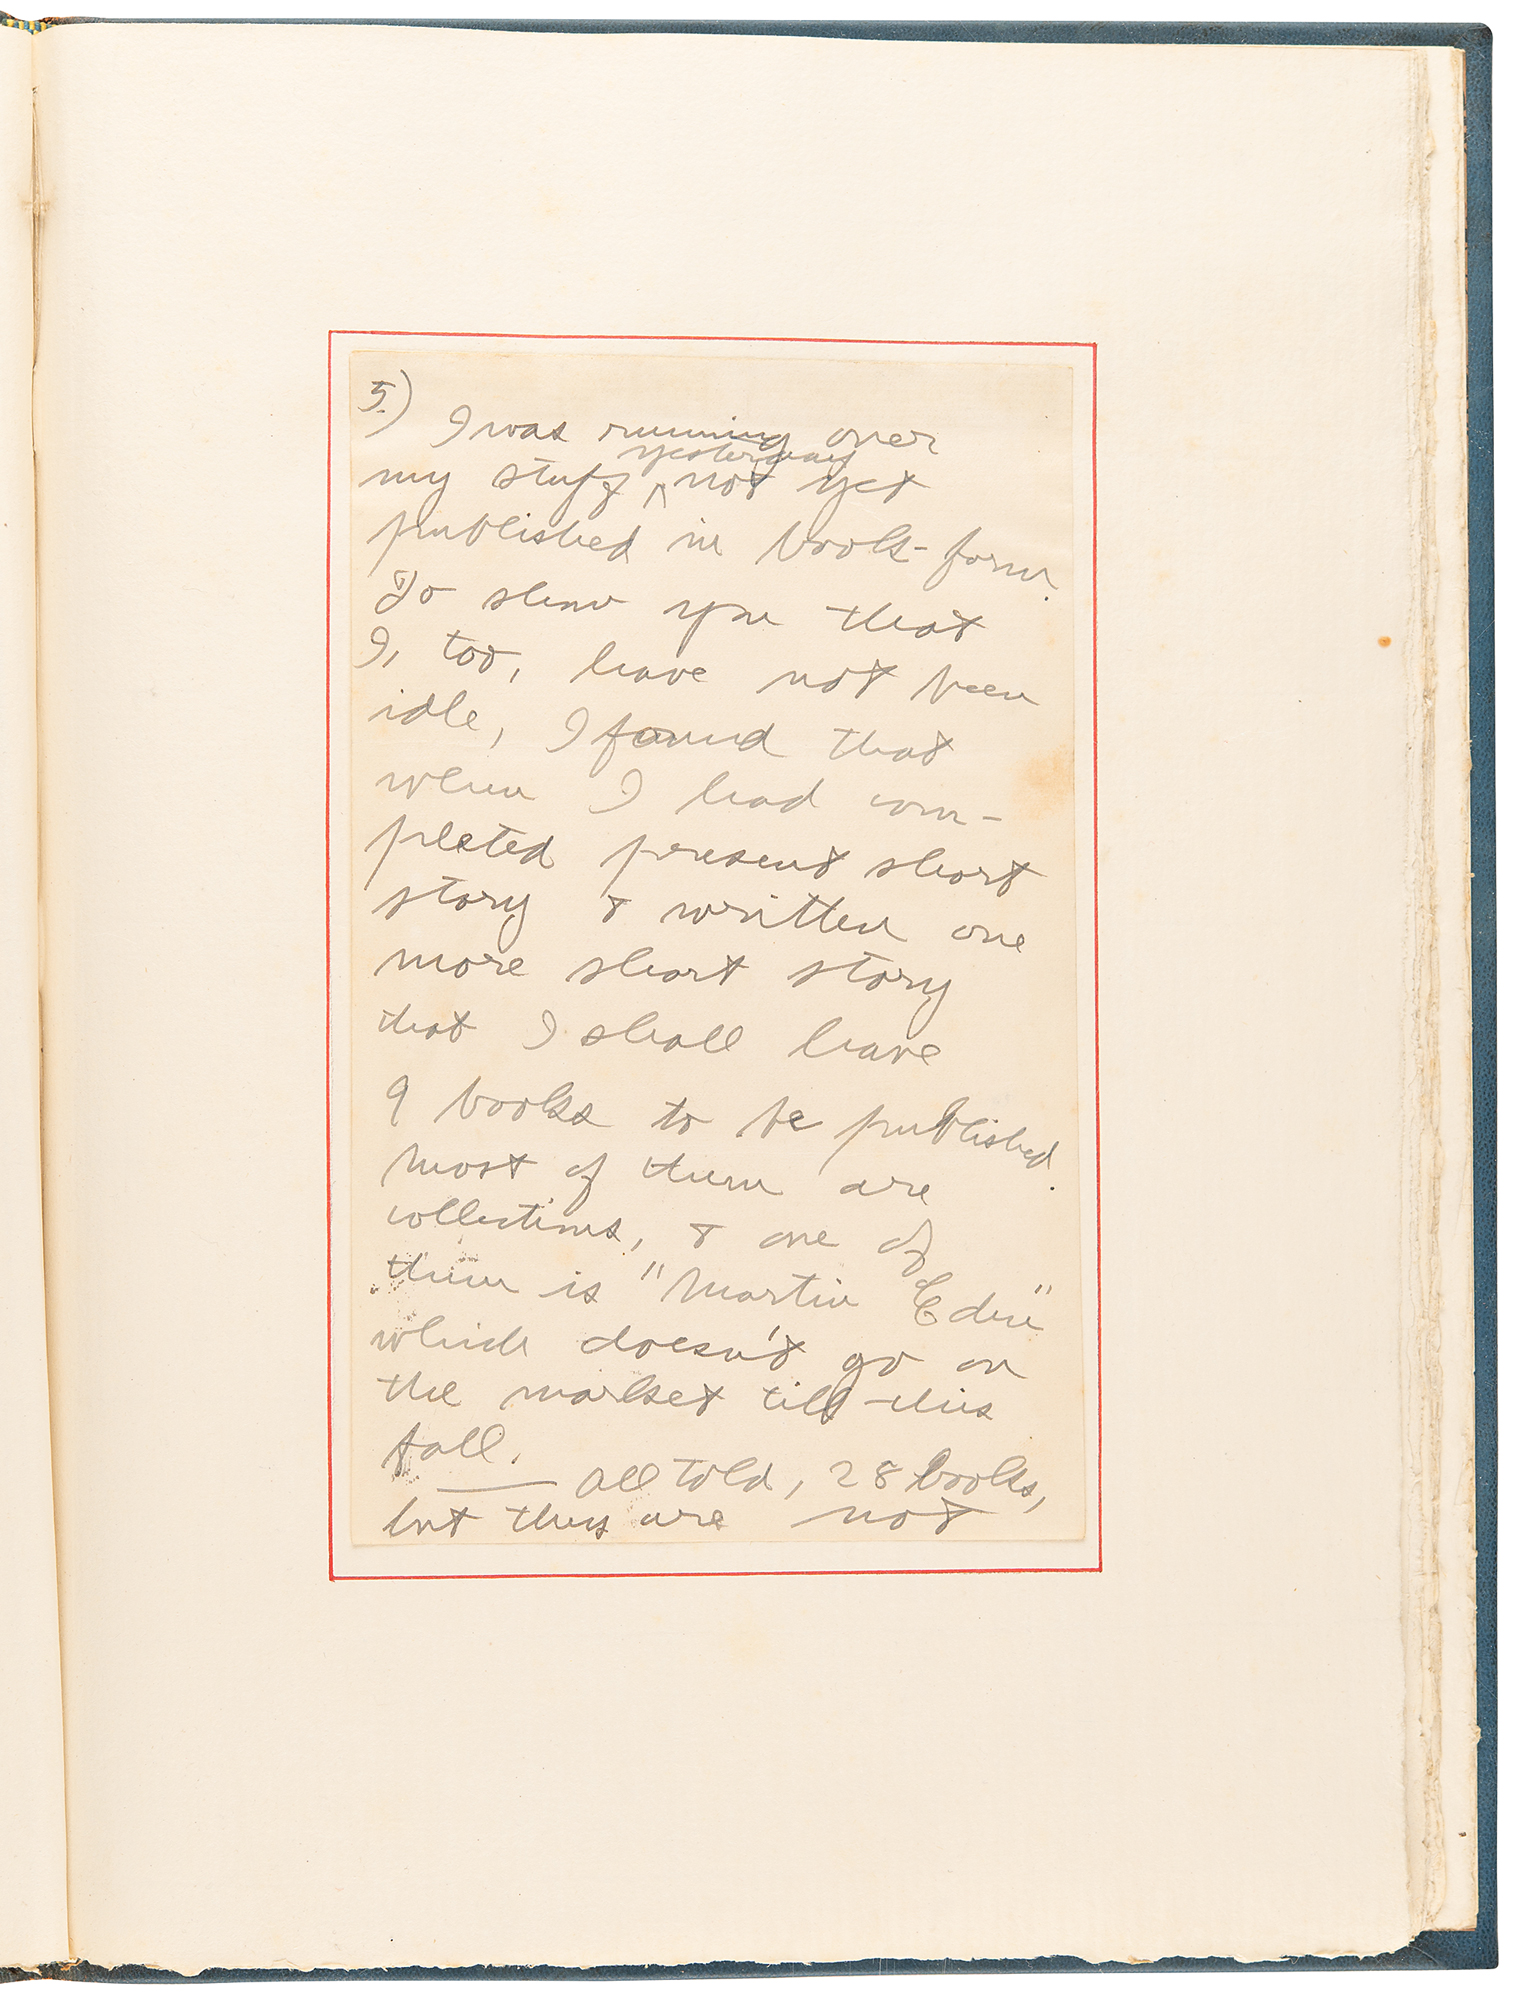 5.) I was running over
my stuff ^ yesterday not yet
published in book-form.
To show you that
I, too, have not been
idle, I found that
when I had com-
pleted present short
story & written one
more short story
that I shall have
9 books to be published.
Most of them are
collections, & one of
them is "Martin Eden"
which doesn't go on
the market till this
fall.
— All told, 28 books,
but they are not